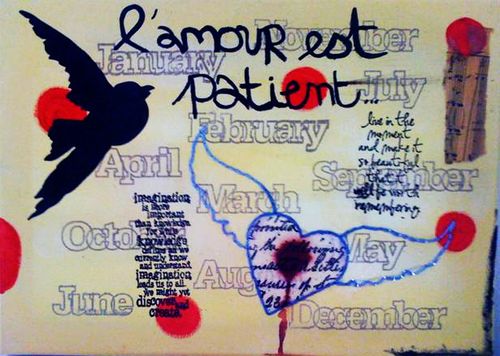 l'amour est
patient...
January
November
July
February
April
September
March
October
May
August
June
December
live in the
moment
and make it
so beautiful
that it
will be worth
remembering
imagination
is more
important
than knowledge
for while
knowledge
defines all we
currently know
and understand
imagination
leads us to all
we might yet
discover
and
create
the following